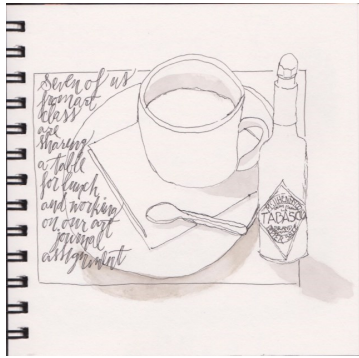 seven of us
from art
class
are
sharing
a table
for lunch
and working
on our art
journal
assignment
TABASCO